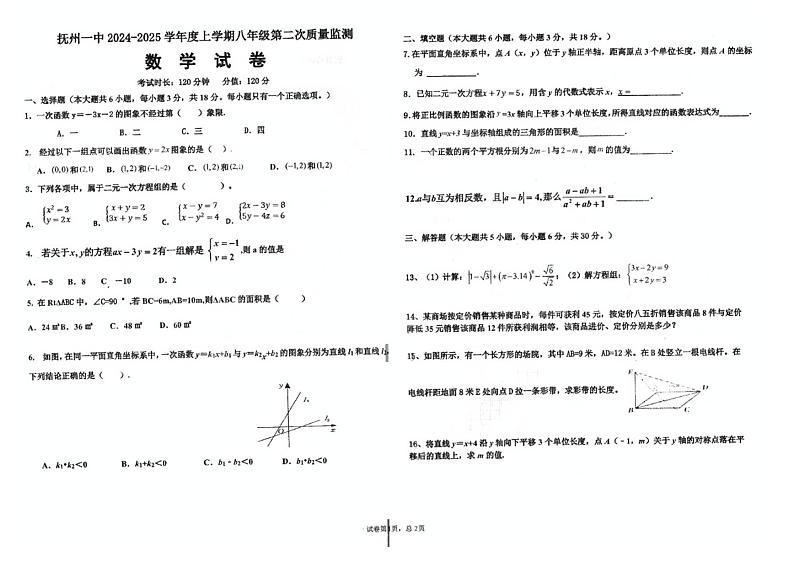 抚州一中 2024-2025 学年度上学期八年级第二次质量监测
数 学 试 卷
考试时长：120 分钟 分值：120 分
一、选择题（本大题共 6 小题，每小题 3 分，共 18 分。每小题只有一个正确选项。）
1. 一次函数 y=-3x-2 的图象不经过第（ ）象限.
A. 一 B. 二 C. 三 D. 四
2. 经过以下一组点可以画出函数 y=2x 图象的是（ ）
A. (0,0)和(2,1) B. (1,2)和(-1,-2) C. (1,2)和(2,1) D. (-1,2)和(1,2)
3. 下列各项中，属于二元一次方程组的是（ ）。
A. {x²=3 y=2x B. {x+y=2 3x+y=5 C. {x-y=7 x-y²=4 D. {2x-3y=8 5y-4z=6
4. 若关于x,y的方程ax-3y=2有一组解是 {x=-1 y=2 ,则 a 的值是
A. -8 B. 8 C. -10 D. 2
5. 在 Rt△ABC 中, ∠C=90°,若 BC=6m,AB=10m,则△ABC 的面积是（ ）
A. 24 ㎡ B. 36 ㎡ C. 48 ㎡ D. 60 ㎡
6. 如图,在同一平面直角坐标系中,一次函数 y=k₁x+b₁ 与 y=k₂x+b₂ 的图象分别为直线 l₁ 和直线 l₂,
下列结论正确的是（ ）.
y
l₁
l₂
O
x
A. k₁•k₂<0 B. k₁+k₂<0 C. b₁-b₂<0 D. b₁•b₂<0
二、填空题（本大题共 6 小题，每小题 3 分，共 18 分。）
7. 在平面直角坐标系中，点 A（x，y）位于 y 轴正半轴，距离原点 3 个单位长度，则点 A 的坐标
为 ________.
8. 已知二元一次方程x+7y=5，用含 y 的代数式表示 x，x=________.
9. 将正比例函数的图象沿 y=3x 轴向上平移 3 个单位长度,所得直线对应的函数表达式为________.
10. 直线 y=x+3 与坐标轴组成的三角形的面积是________.
11. 一个正数的两个平方根分别为2m-1与2-m，则 m 的值为________.
12.a与b互为相反数，且|a-b|=4,那么 (a-ab+1)/(a²+ab+1) =________.
三、解答题（本大题共 5 小题，每小题 6 分，共 30 分。）
13、（1）计算: |1-√3|+(π-3.14)⁰-√6/√2；（2）解方程组: {3x-2y=9 x+2y=3
14、某商场按定价销售某种商品时，每件可获利 45 元，按定价八五折销售该商品 8 件与定价
降低 35 元销售该商品 12 件所获利润相等，该商品进价、定价分别是多少？
15、如图所示，有一个长方形的场院，其中 AB=9 米，AD=12 米。在 B 处竖立一根电线杆。在
电线杆距地面 8 米 E 处向点 D 拉一条彩带，求彩带的长度。
E
D
B
C
16、将直线 y=x+4 沿 y 轴向下平移 3 个单位长度，点 A（-1，m）关于 y 轴的对称点落在平
移后的直线上，求 m 的值.
试卷第1页，总 2页